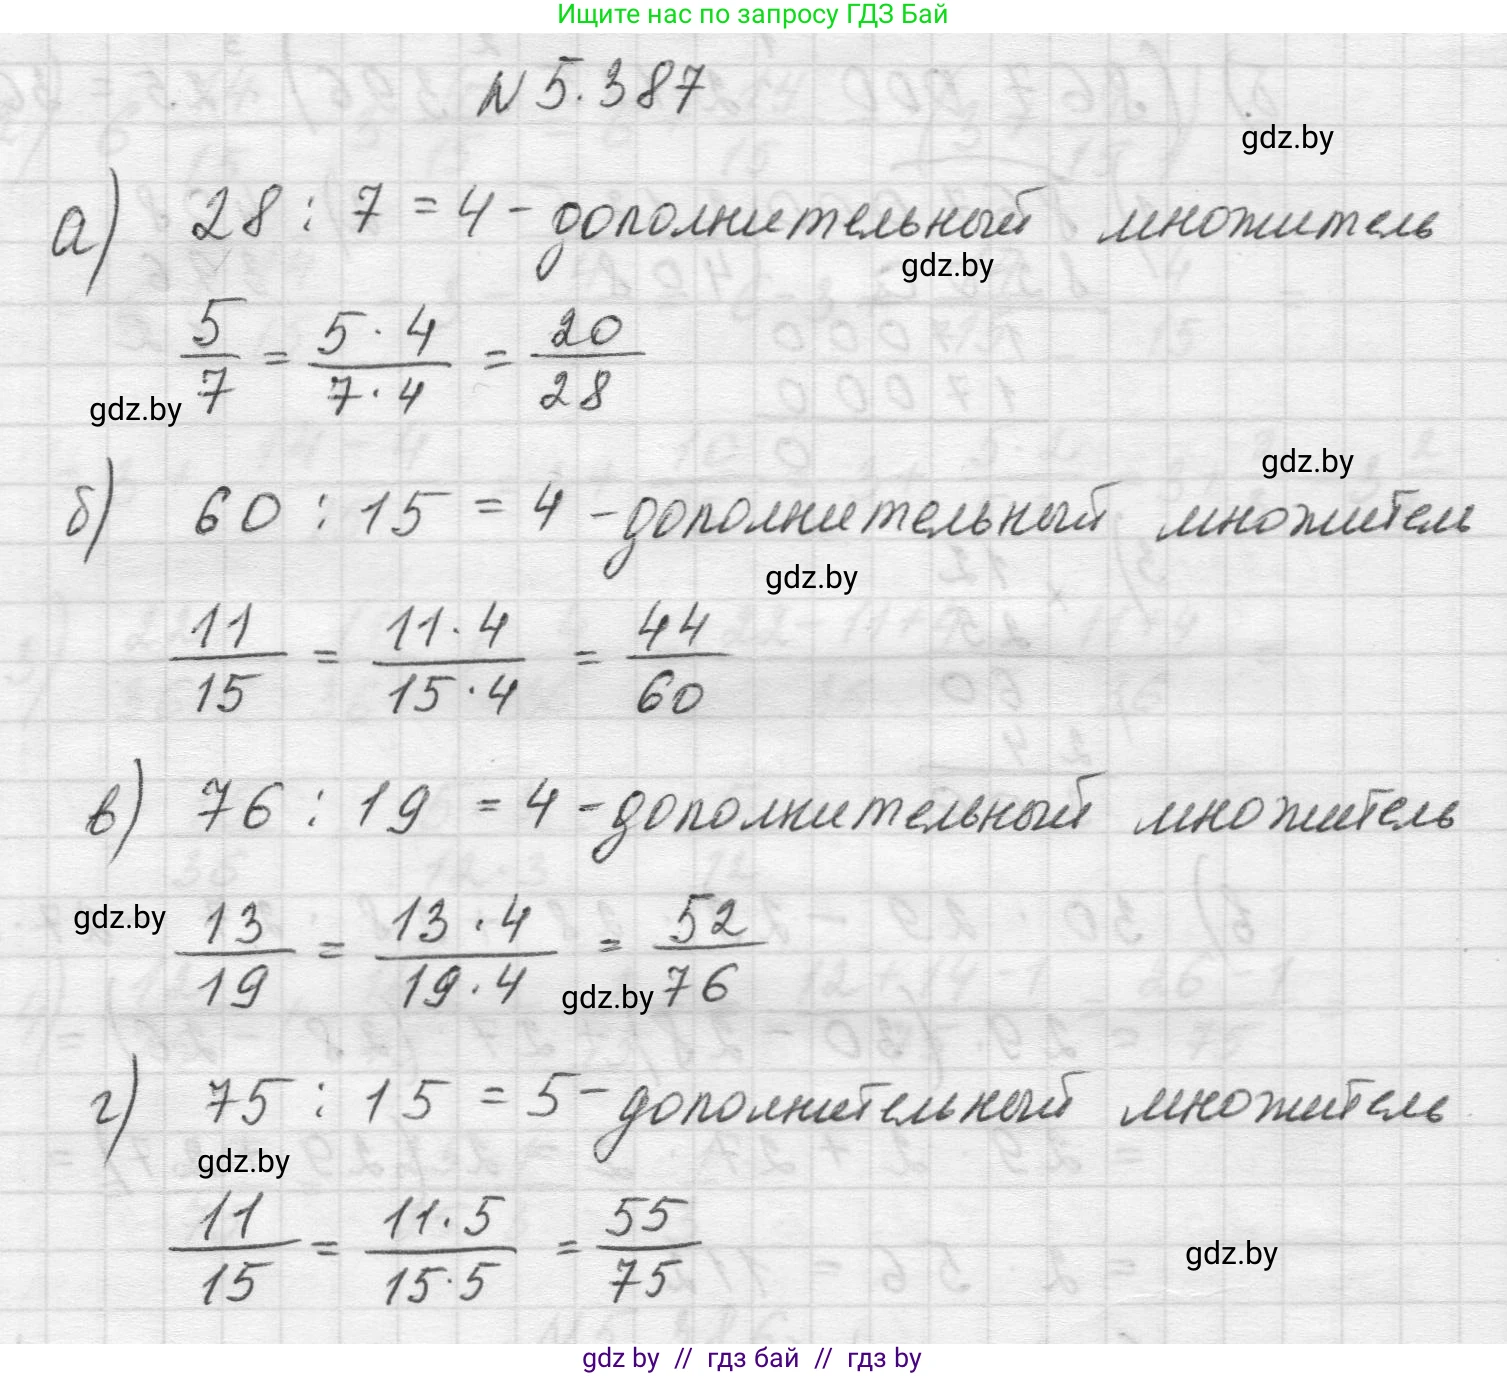 Ищите нас по запросу ГДЗ Бай
N 5.387
gdz.by
а) 28 : 7 = 4 - дополнительный множитель
gdz.by
5/7 = 5·4/7·4 = 20/28
gdz.by
gdz.by
б) 60 : 15 = 4 - дополнительный множитель
gdz.by
11/15 = 11·4/15·4 = 44/60
в) 76 : 19 = 4 - дополнительный множитель
gdz.by
13/19 = 13·4/19·4 = 52/76
gdz.by
г) 75 : 15 = 5 - дополнительный множитель
gdz.by
11/15 = 11·5/15·5 = 55/75
gdz.by
gdz by // гдз бай // гдз by